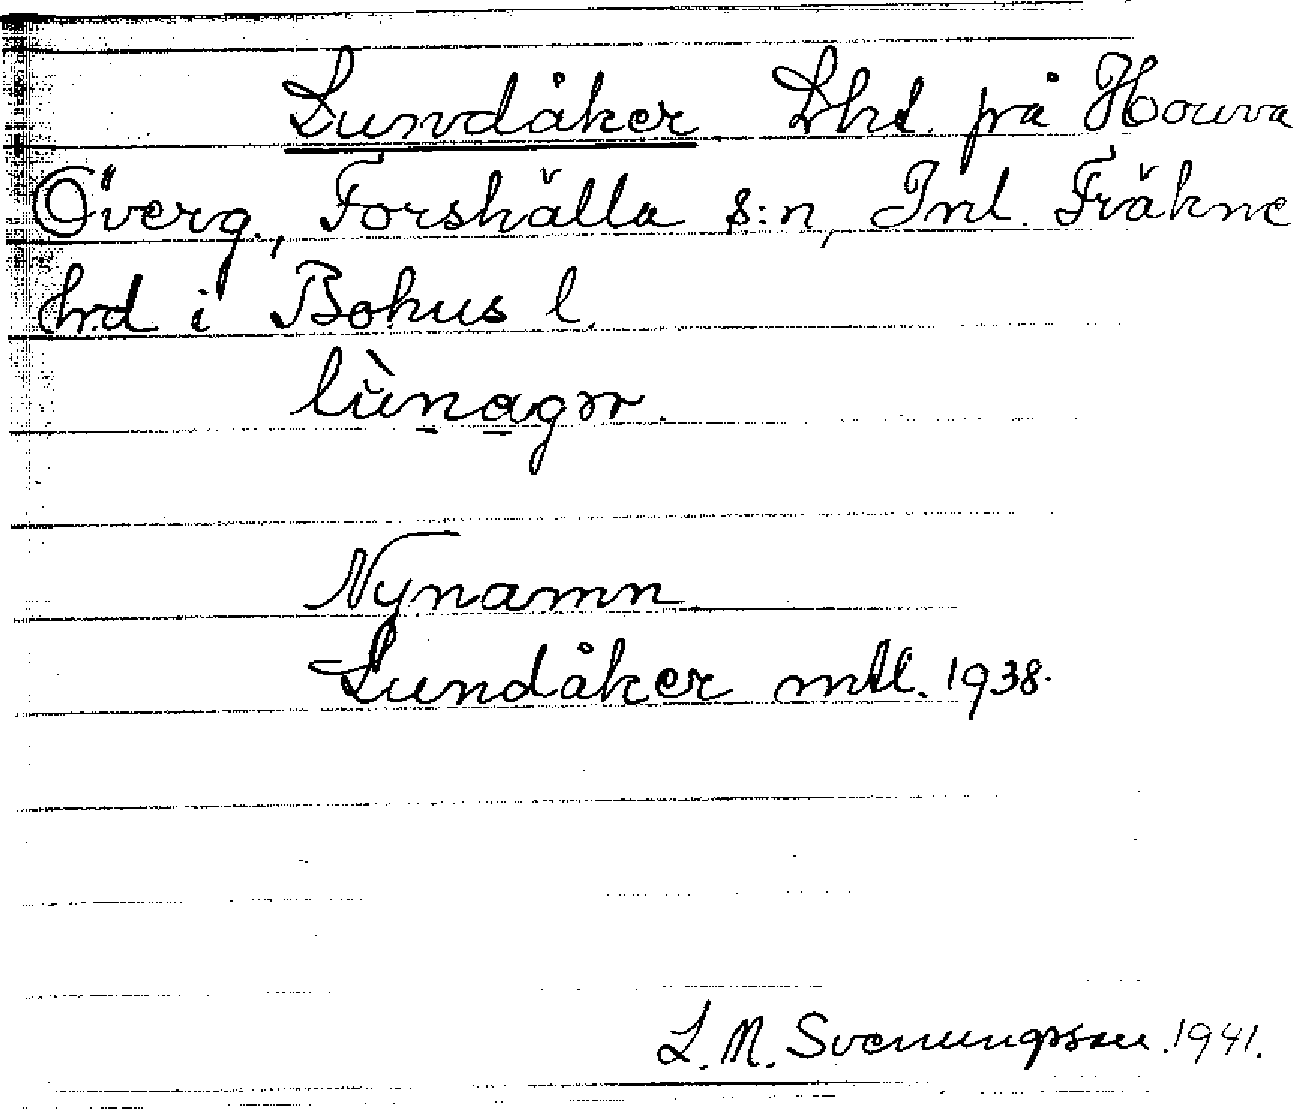 Lundåker Lht. på Houva
Överg., Forshälla s:n, Inl. Fräkne
hrd i Bohus l.
lùnagər.
Nynamn
Lundåker mtl. 1938.
L. M. Svenungsson. 1941.